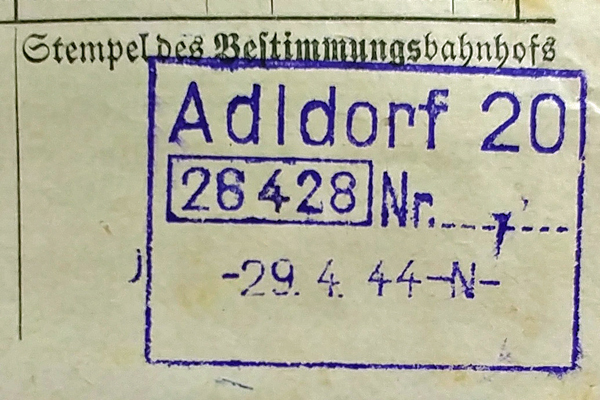 Stempel des Bestimmungsbahnhofs
Adldorf 20
26428 Nr. 7
-29. 4. 44-N-